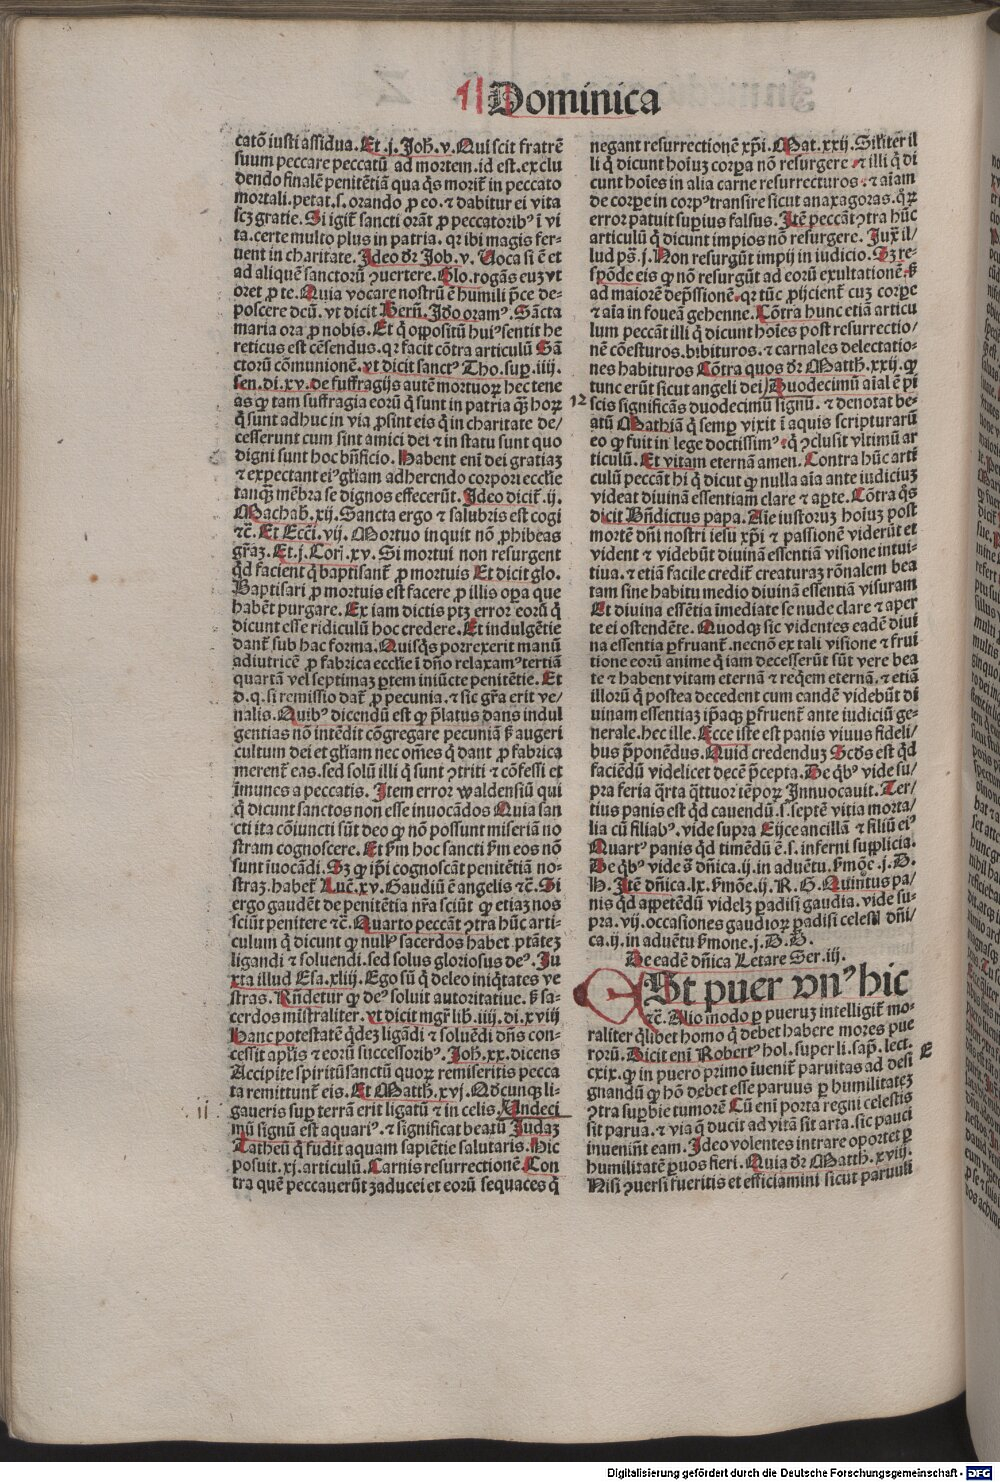 Dominica
catõ iusti assidua. Et .j. Joh̃. v. Qui scit fratrẽ
suum peccare peccatũ ad mortem. id est. exclu
dendo finalẽ penitẽtiã qua q̃s morit̃ in peccato
mortali. petat .s. orando ꝓ eo. ⁊ dabitur ei vita
scꝫ gratie. Si igit̃ sancti orãt ꝓ peccatoribꝰ ĩ vi
ta. certe multo plus in patria. qꝛ ibi magis fer-
uent in charitate. Ideo dr̃ Job. v. Uoca si ẽ et
ad aliquẽ sanctorũ ꝯuertere. Glo. rogãs euꝫ vt
oret ꝓ te. Quia vocare nostrũ ẽ humili p̃ce de-
poscere dcũ. vt dicit Bern̄. Ido oramꝰ. Sãcta
maria ora ꝓ nobis. Et q̃ oppositũ huiꝰ sentit he
reticus est cẽsendus. qꝛ facit cõtra articulũ Sã
ctorũ cõmunionẽ. vt dicit sanctꝰ Tho. suꝑ .iiij.
sen. di. xv. de suffragijs autẽ mortuoꝝ hec tene
as ꝙ tam suffragia eorũ q̃ sunt in patria q̃ꝫ hoꝝ
q̃ sunt adhuc in via ꝓsint eis q̃ in charitate de-
cesserunt cum sint amici dei ⁊ in statu sunt quo
digni sunt hoc bñficio. Habent eni dei gratiaꝫ
⁊ expectant eiꝰ gl̃iam adherendo corpori eccl̃ie
tanqꝫ mẽbra se dignos effecerũt. Ideo dicit̃ .ij.
Machab̃. xij. Sancta ergo ⁊ salubris est cogi
⁊c̃. Et Ecci̇. vij. Mortuo inquit nõ ꝓhibeas
gr̃aꝫ. Et .j. Cori̇. xv. Si mortui non resurgent
q̃d facient q̃ baptisant̃ ꝓ mortuis Et dicit glo.
Baptisari ꝓ mortuis est facere ꝓ illis oꝑa que
habẽt purgare. Ex iam dictis ptꝫ error eorũ q̃
dicunt esse ridiculũ hoc credere. Et indulgẽtie
dant̃ sub hac forma. Quisq̃s porrexerit manũ
adiutricẽ ꝓ fabrica eccl̃ie ĩ dño relaxamꝰ tertiã
quartã vel septimaꝫ ꝑtem iniũcte penitẽtie. Et
d. q. si remissio dat̃ ꝓ pecunia. ⁊ sic gr̃a erit ve/
nalis. Quibꝰ dicendũ est ꝙ p̃latus dans indul
gentias nõ intẽdit cõgregare pecuniã ẞ augeri
cultum dei et gl̃iam nec om̃es q̃ dant ꝓ fabrica
merent̃ eas. sed solũ illi q̃ sunt ꝯtriti ⁊ cõfessi et
ĩmunes a peccatis. Item error waldensiũ qui
q̃ dicunt sanctos non esse inuocãdos Quia san
cti ita cõiuncti sũt deo ꝙ nõ possunt miseriã no
stram cognoscere. Et ẞm hoc sancti ẞm eos nõ
sunt iuocãdi. Sꝫ ꝙ ip̃i cognoscãt penitẽtiã no-
straꝫ. habet̃ Luc̃. xv. Gaudiũ ẽ angelis ⁊c̃. Si
ergo gaudẽt de penitẽtia nr̃a sciũt ꝙ etiaꝫ nos
sciũt penitere ⁊c̃. Quarto peccãt ꝯtra hũc arti-
culum q̃ dicunt ꝙ nullꝰ sacerdos habet ptãteꝫ
ligandi ⁊ soluendi. sed solus gloriosus deꝰ. Ju
xta illud Esa. xliij. Ego sũ q̃ deleo iniq̃tates ve
stras. Rñdetur ꝙ deꝰ soluit autoritatiue. ẞ sa-
cerdos mĩstraliter. vt dicit mgr̃ lib. iiij. di. xviij
Hanc potestatẽ q̃deꝫ ligãdi ⁊ soluẽdi dñs con-
cessit apl̃is ⁊ eorũ successoribꝰ. Joh̃. xx. dicens
Accipite spiritũ sanctũ quoꝝ remiseritis pecca
ta remittunt̃ eis. Et Matth̃. xvj. Qdcunqꝫ li-
ii
gaueris suꝑ terrã erit ligatũ ⁊ in celis. Undeci
mũ signũ est aquariꝰ. ⁊ significat beatũ Judaꝫ
Tatheũ q̃ fudit aquam sapiẽtie salutaris. Hic
posuit .xj. articulũ. Carnis resurrectionẽ. Con
tra quẽ peccauerũt zaducei et eorũ sequaces q̃
negant resurrectionẽ xp̃i. Mat. xxij. Silĩter il
li q̃ dicunt hoiuꝫ corꝑa nõ resurgere. ⁊ illi q̃ di
cunt hoĩes in alia carne resurrecturos. ⁊ aĩam
de corꝑe in corpꝰ transire sicut anaxagoras. q̃ꝝ
error patuit suꝑius falsus. Itẽ peccãt ꝯtra hũc
articulũ q̃ dicunt impios nõ resurgere. Jux̃ il/
lud ps̃. j. Non resurgũt impij in iudicio. Sꝫ re-
spõde eis ꝙ nõ resurgũt ad eorũ exultationẽ. ẞ
ad maiorẽ dep̃ssionẽ. qꝛ tũc ꝓijcient̃ cuꝫ corꝑe
⁊ aĩa in foueã gehenne. Cõtra hunc etiã articu
lum peccãt illi q̃ dicunt hoĩes post resurrectio/
nẽ cõesturos. bibituros. ⁊ carnales delectatio-
nes habituros Cõtra quos dr̃ Matth̃. xxij. ꝙ
tunc erũt sicut angeli dei Duodecimũ aĩal ẽ pi
12
scis significãs duodecimũ signũ. ⁊ denotat be-
atũ Mathiã q̃ semꝑ vixit ĩ aquis scripturarũ
eo ꝙ fuit in lege doctissimꝰ. q̃ ꝯclusit vltimũ ar
ticulũ. Et vitam eternã amen. Contra hũc arti
culũ peccãt hi q̃ dicut ꝙ nulla aĩa ante iudiciuꝫ
videat diuinã essentiam clare ⁊ aꝑte. Cõtra q̃s
dicit Bñdictus papa. Aĩe iustoruꝫ hoiuꝫ post
mortẽ dñi nostri iesu xp̃i ⁊ passionẽ viderũt et
vident ⁊ videbũt diuinã essentiã visione intui-
tiua. ⁊ etiã facile credit̃ creaturaꝫ rõnalem bea
tam sine habitu medio diuinã essentiã visuram
Et diuina essẽtia ĩmediate se nude clare ⁊ aper
te ei ostendẽte. Quodqꝫ sic videntes eadẽ diui
na essentia ꝑfruant̃. necnõ ex tali visione ⁊ frui
tione eorũ anime q̃ iam decesserũt sũt vere bea
te ⁊ habent vitam eternã ⁊ req̃em eternã. ⁊ etiã
illorũ q̃ postea decedent cum eandẽ videbũt di
uinam essentiaꝫ ip̃aqꝫ ꝑfruent̃ ante iudiciũ ge-
nerale. hec ille. Ecce iste est panis viuus fideli/
bus p̃ponẽdus. Quid credenduꝫ Scd̃s est q̃d
faciẽdũ videlicet decẽ p̃cepta. De q̃bꝰ vide su/
pra feria q̃rta q̃ttuor iẽpoꝝ Innuocauit. Ter/
tius panis est q̃d cauendũ .s. septẽ vitia morta/
lia cũ filiabꝰ. vide supra Eijce ancillã ⁊ filiũ eiꝰ
Quartꝰ panis q̃d timẽdũ ẽ .s. inferni supplicia.
De q̃bꝰ vide s̃ dñica .ij. in aduẽtu. ẞmõe .j. D.
H. Itẽ dñica. lx. ẞmõe .ij. R. G. Quintus pa/
nis q̃d appetẽdũ videlꝫ ꝑadisi gaudia. vide su-
pra. vij. occasiones gaudioꝝ ꝑadisi celesti dñi/
ca .ij. in aduẽtu ẞmone .j. D. H.
De eadẽ dñica Letare Ser. iij.
ESt puer vnꝰ hic
⁊c̃. Alio modo ꝑ pueruꝫ intelligit̃ mo-
raliter q̃libet homo q̃ debet habere mores pue
rorũ. Dicit eni Robertꝰ hol. super li. sap̃. lect.
E
cxix. ꝙ in puero primo ĩuenit̃ paruitas ad desi
gnandũ ꝙ hõ debet esse paruus ꝑ humilitateꝫ
ꝯtra suꝑbie tumorẽ Cũ eni porta regni celestis
sit parua. ⁊ via q̃ ducit ad vitã sit arta. sic pauci
inuenint eam. Ideo volentes intrare oportet ꝑ
humilitatẽ ꝑuos fieri. Quia dr̃ Matth̃. xviij.
Nisi ꝯuersi fueritis et efficiamini sicut paruuli
Digitalisierung gefördert durch die Deutsche Forschungsgemeinschaft - DFG